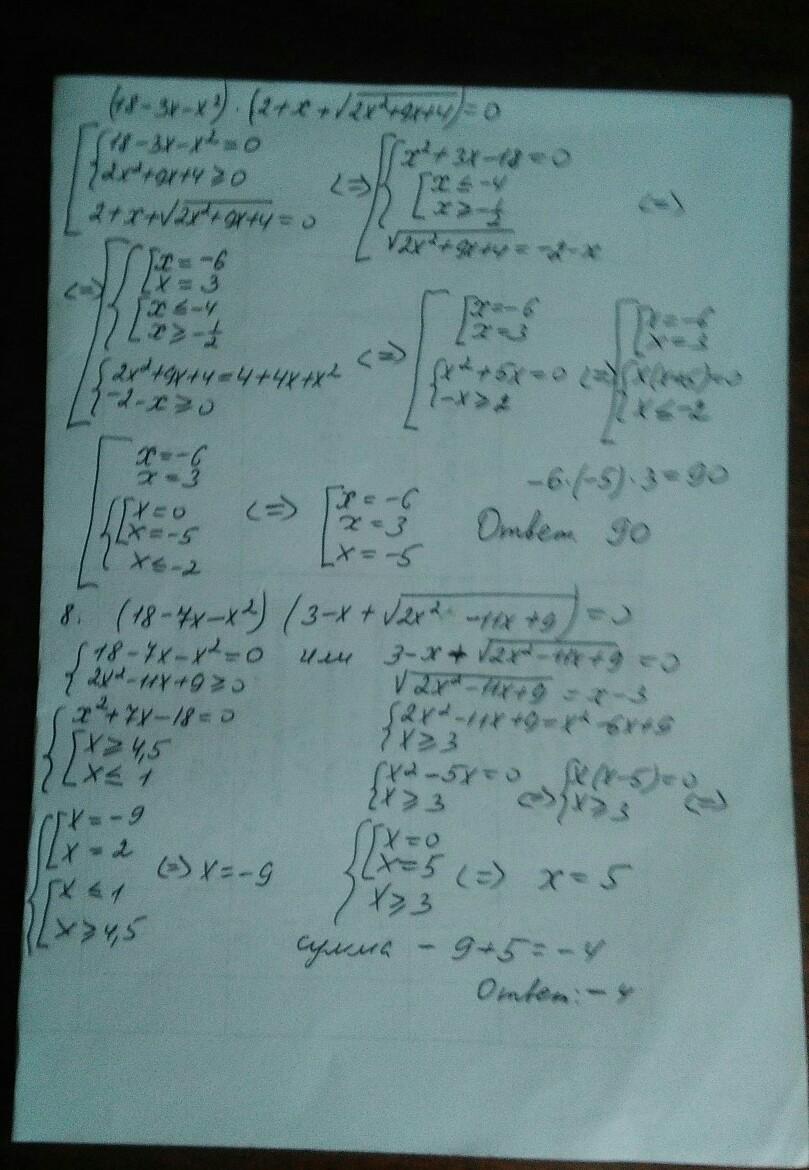 (18-3x-x²)·(2+x+√2x²+9x+4)=0
[{18-3x-x²=0
2x²+9x+4≥0
2+x+√2x²+9x+4=0
<=>
[{x²+3x-18=0
[x≤-4
x≥-1/2
√2x²+9x+4=-2-x
<=>
<=> [{[x=-6
x=3
[x≤-4
x≥-1/2
{2x²+9x+4=4+4x+x²
-2-x≥0
<=>
[[x=-6
x=3
{x²+5x=0
-x≥2
<=>
[[x=-6
x=3
{x(x+5)=0
x≤-2
[x=-6
x=3
{[x=0
x=-5
x≤-2
<=>
[x=-6
x=3
x=-5
-6·(-5)·3=90
Ответ 90
8. (18-7x-x²)(3-x+√2x²-11x+9)=0
{18-7x-x²=0 или 3-x+√2x²-11x+9=0
2x²-11x+9≥0
√2x²-11x+9=x-3
{x²+7x-18=0
[x≥4,5
x≤1
{2x²-11x+9=x²-6x+9
x≥3
{x²-5x=0
x≥3
<=> {x(x-5)=0
x≥3
<=>
{[x=-9
x=2
[x≤1
x≥4,5
<=> x=-9
{[x=0
x=5
x≥3
<=> x=5
сумма -9+5=-4
Ответ:-4